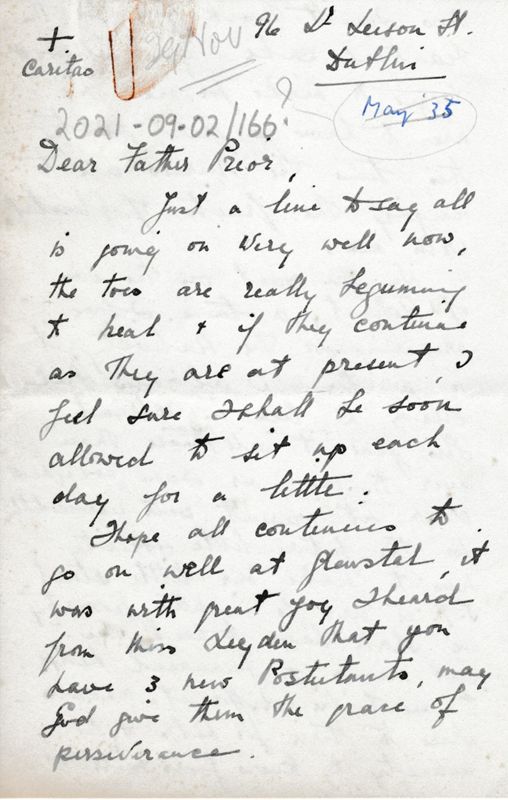 +
Caritas
24 Nov
96 Lr Leeson St.
Dublin
?
May 35
2021-09-02/166
Dear Father Prior,
Just a line to say all
is going on very well now,
the toes are really beginning
to heal & if they continue
as they are at present, I
feel sure I shall be soon
allowed to sit up each
day for a little.
I hope all continues to
go on well at Glenstal, it
was with great joy I heard
from Miss Leyden that you
have 3 new Postulants, may
God give them the grace of
perseverance.